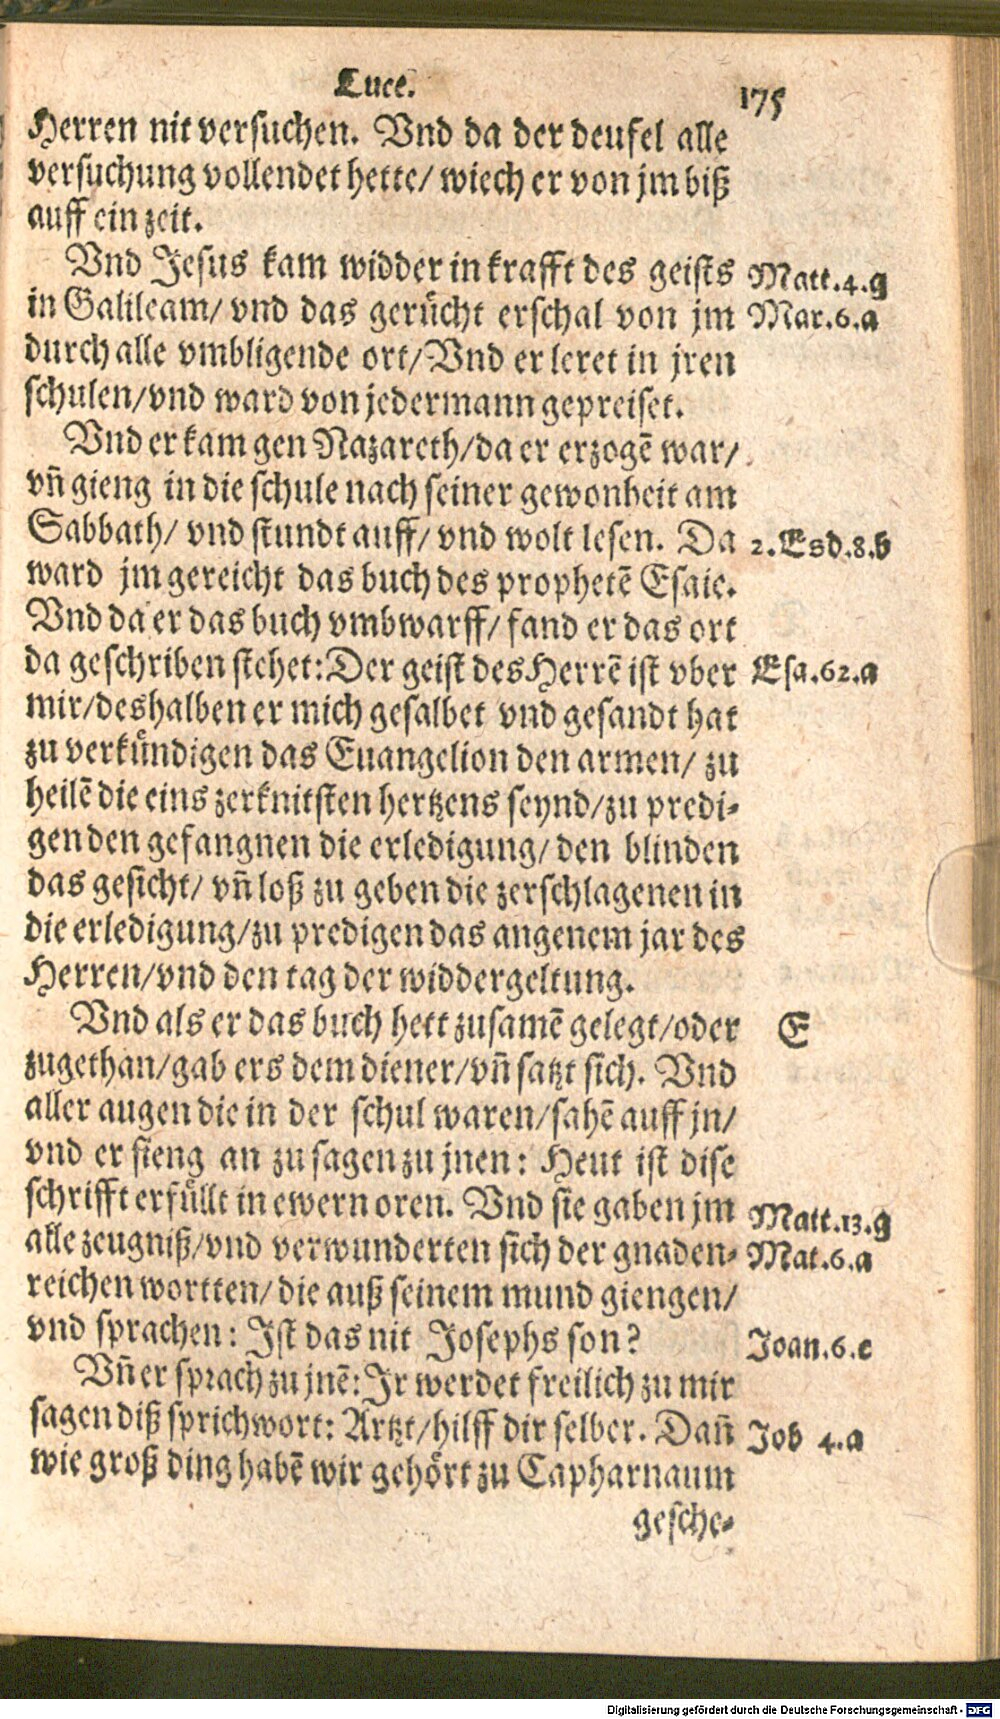 Luce. 175
Herren nit versuchen. Vnd da der deufel alle
versuchung vollendet hette/ wiech er von jm biß
auff ein zeit.
Vnd Jesus kam widder in krafft des geists Matt.4.g
in Galileam/ vnd das gerücht erschal von jm Mar.6.a
durch alle vmbligende ort/ Vnd er leret in jren
schulen/ vnd ward von jedermann gepreiset.
Vnd er kam gen Nazareth/ da er erzogē war/
vñ gieng in die schule nach seiner gewonheit am
Sabbath/ vnd stundt auff/ vnd wolt lesen. Da 2.Esd.8.b
ward jm gereicht das buch des prophetē Esaie.
Vnd da er das buch vmbwarff/ fand er das ort
da geschriben stehet: Der geist des Herrē ist vber Esa.62.a
mir/ deshalben er mich gesalbet vnd gesandt hat
zu verkündigen das Euangelion den armen/ zu
heilē die eins zerknitsten hertzens seynd/ zu predi-
gen den gefangnen die erledigung/ den blinden
das gesicht/ vñ loß zu geben die zerschlagenen in
die erledigung/ zu predigen das angenem jar des
Herren/ vnd den tag der widdergeltung.
Vnd als er das buch hett zusamē gelegt/ oder E
zugethan/ gab ers dem diener/ vñ satzt sich. Vnd
aller augen die in der schul waren/ sahē auff jn/
vnd er fieng an zu sagen zu jnen: Heut ist dise
schrifft erfüllt in ewern oren. Vnd sie gaben jm Matt.13.g
alle zeugniß/ vnd verwunderten sich der gnaden- Mat.6.a
reichen wortten/ die auß seinem mund giengen/
vnd sprachen: Ist das nit Josephs son? Joan.6.e
Vñ er sprach zu jnē: Ir werdet freilich zu mir
sagen diß sprichwort: Artzt/ hilff dir selber. Dañ Job 4.a
wie groß ding habē wir gehört zu Capharnaum
gesche-
Digitalisierung gefördert durch die Deutsche Forschungsgemeinschaft - DFG